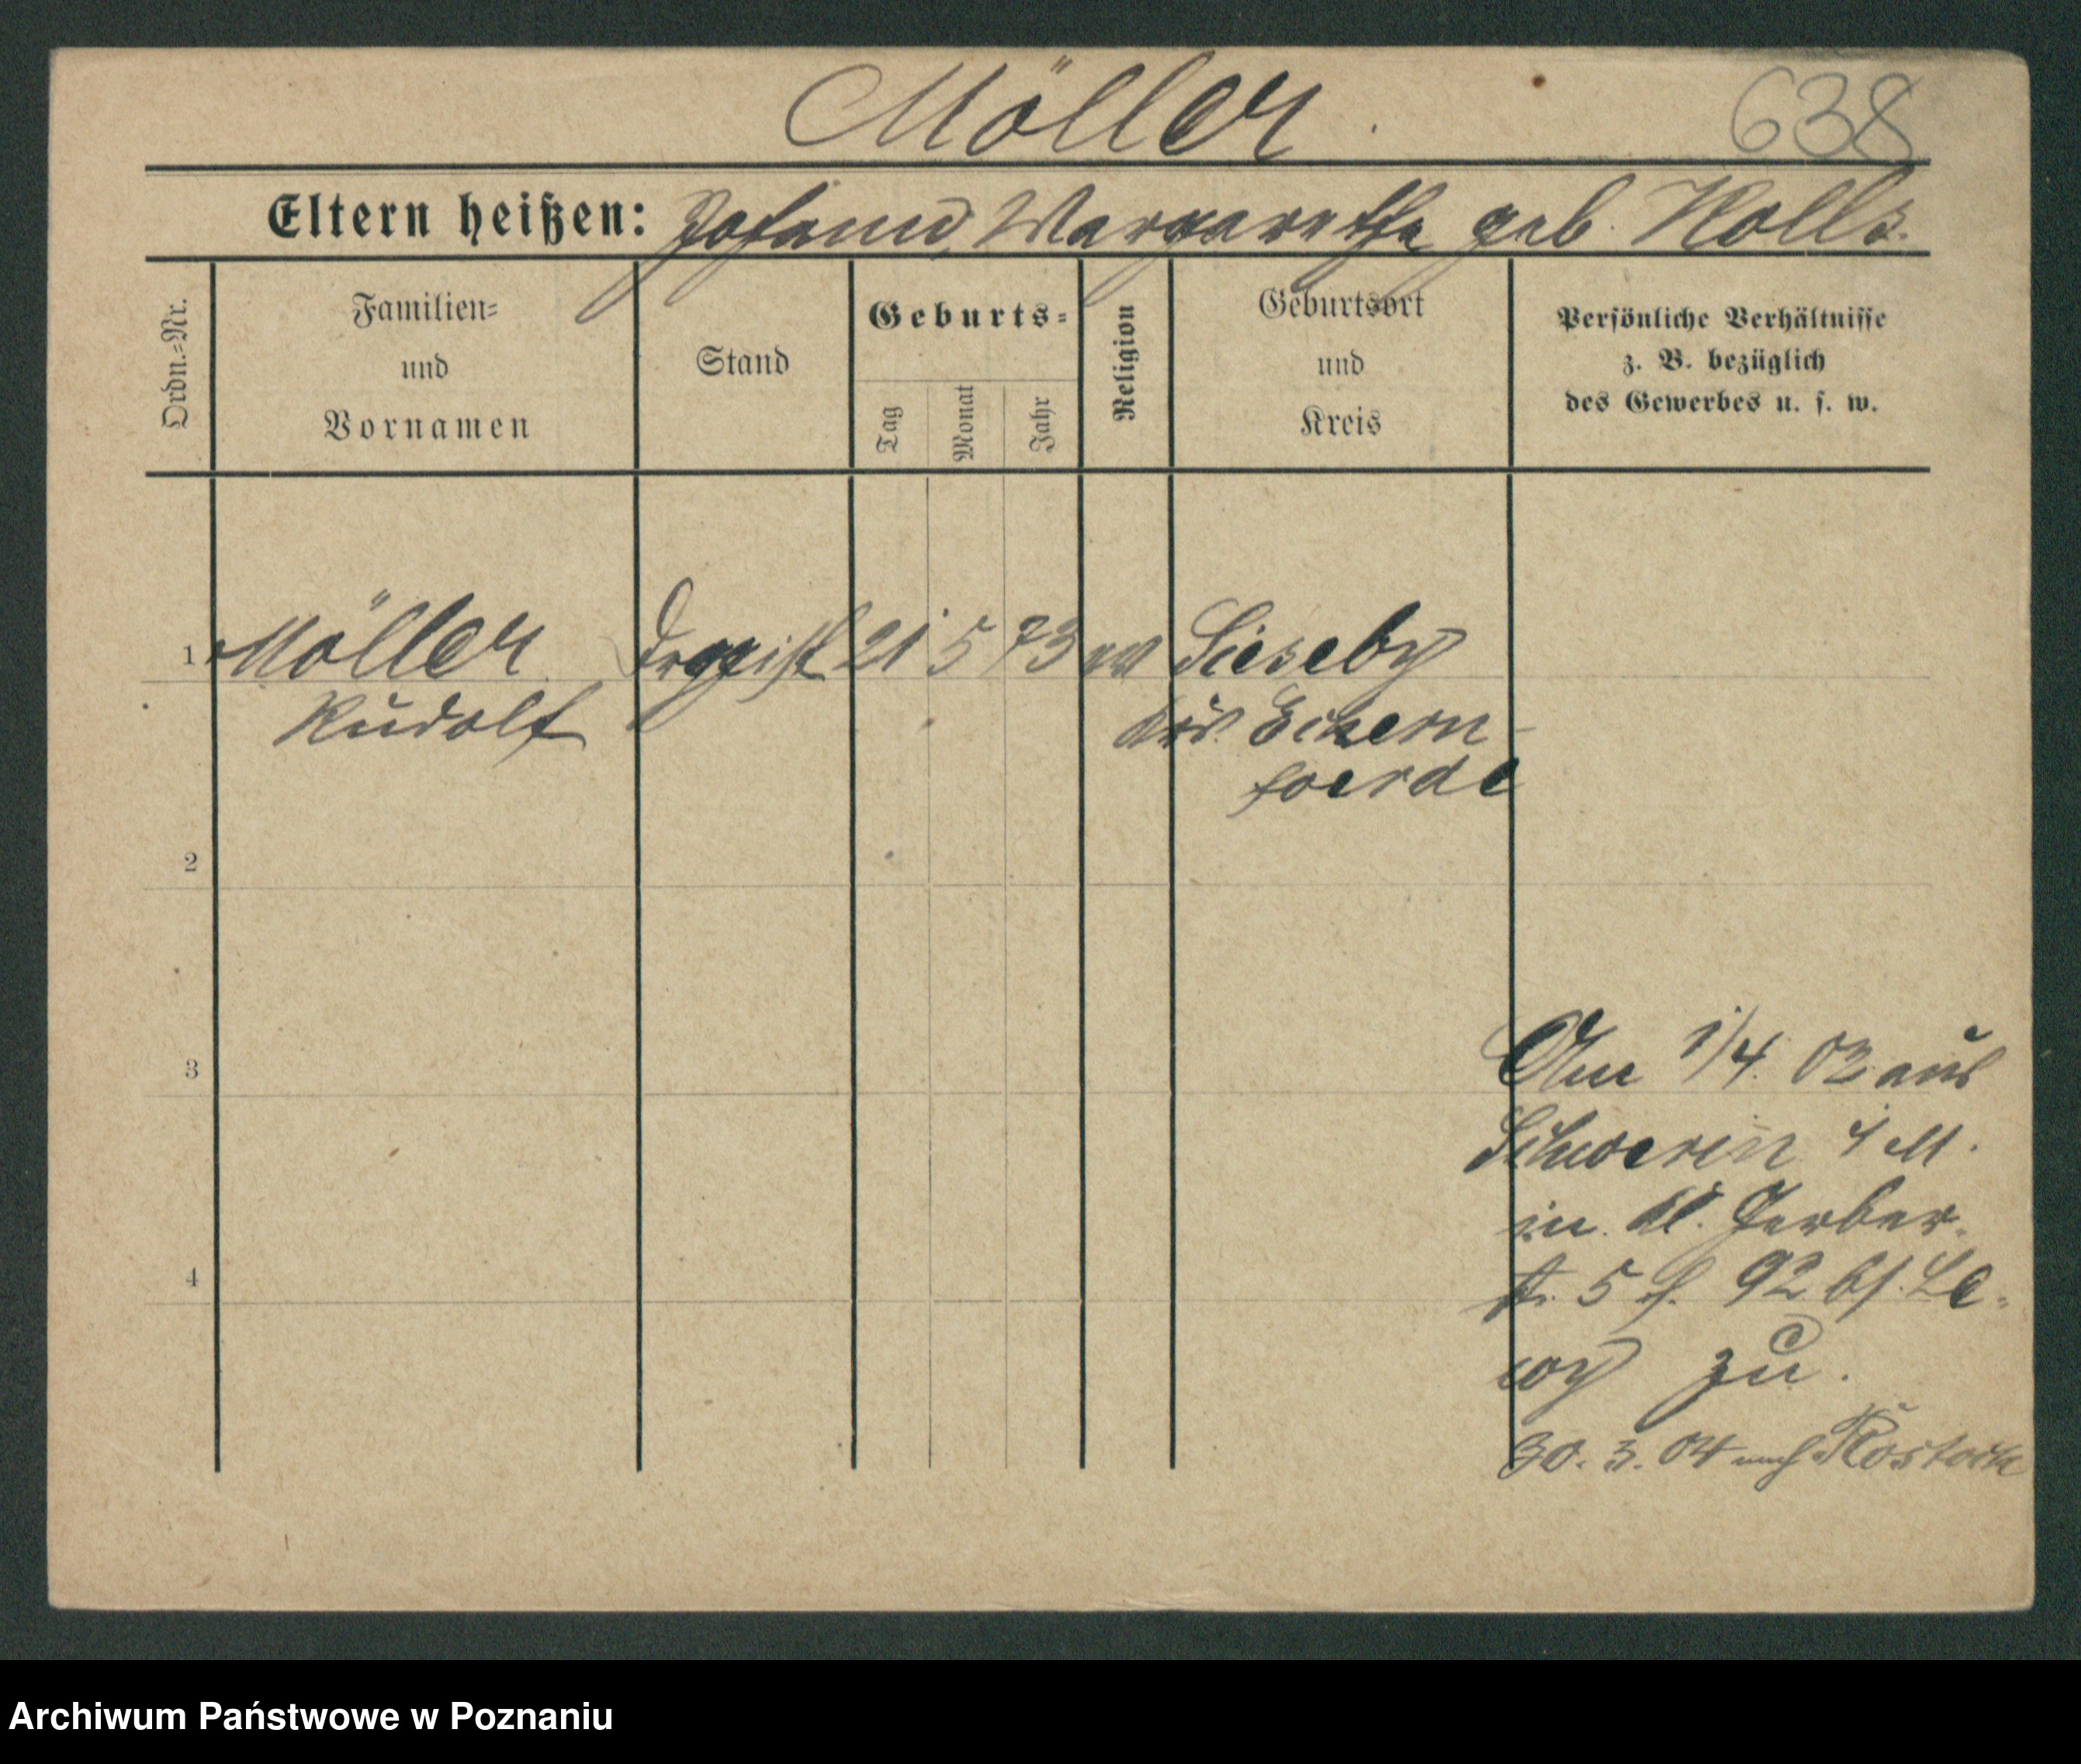 Möller.
638
Eltern heißen: Johann, Margarethe geb. Kolls.
Ordn.=Nr.
Familien=
und
Vornamen
Stand
Geburts=
Tag
Monat
Jahr
Religion
Geburtsort
und
Kreis
Persönliche Verhältnisse
z. B. bezüglich
des Gewerbes u. s. w.
1 Möller 21 5 73 ev Sieseby
Rudolf Krs. Eckern-
foerde
2
3
4
Am 1/4. 02 aus
Schwerin i M.
in Kl. Gerber-
str. 5 92 bs. Le-
wy zu.
30. 3. 04 nach Rostock
Archiwum Państwowe w Poznaniu